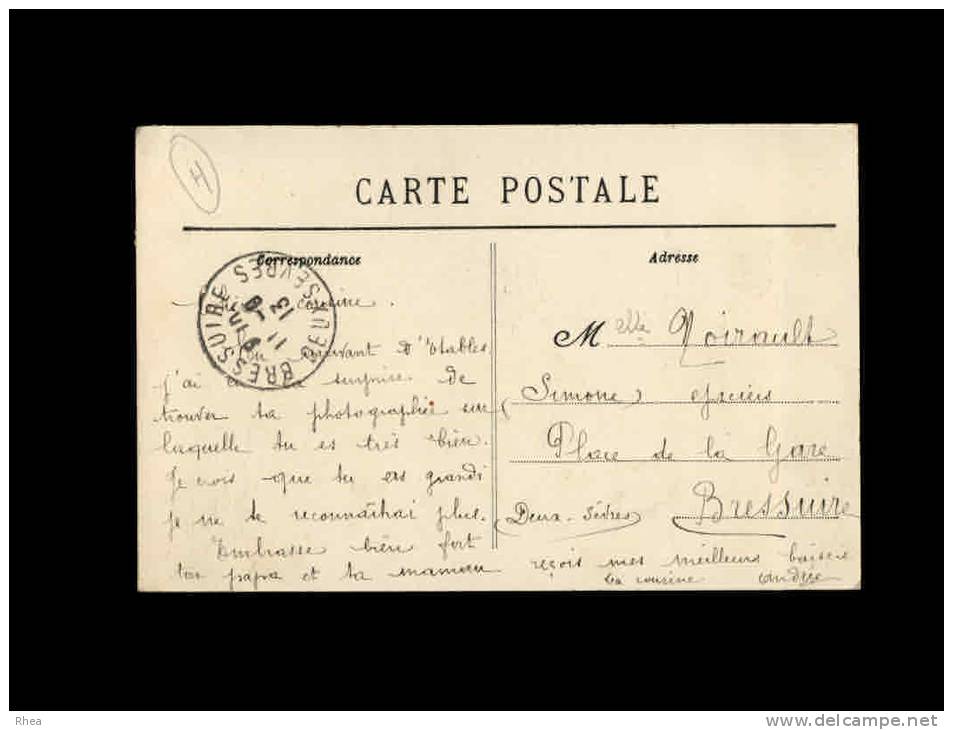 H
CARTE POSTALE
Correspondance
Adresse
BRESSUIRE
DEUX-SEVRES
cousine.
En arrivant d'Etables
j'ai surprise de
trouver ta photographie sur
laquelle tu es très bien.
Je crois que tu as grandi
je ne te reconnaîtrai plus.
Embrasse bien fort
ton papa et ta maman
reçois mes meilleurs baisers
ta cousine
Melle Noirault
Simone épiciers
Place de la Gare
Bressuire
(Deux-Sèvres)
Rhea
www.delcampe.net